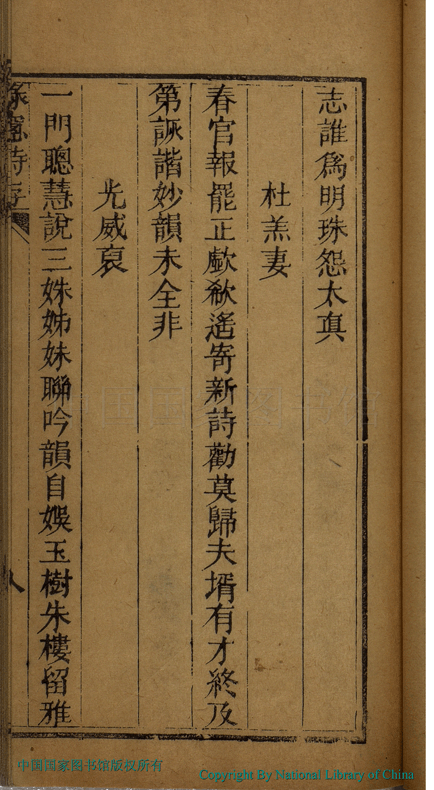 志誰爲明珠怨太眞
杜羔妻
春官報罷正歔欷遙寄新詩勸莫歸夫壻有才終及
第詼諧妙韻未全非
光威裒
一門聰慧說三姝姊妹聯吟韻自娛玉樹朱樓留雅
八
中国国家图书馆版权所有
Copyright By National Library of China